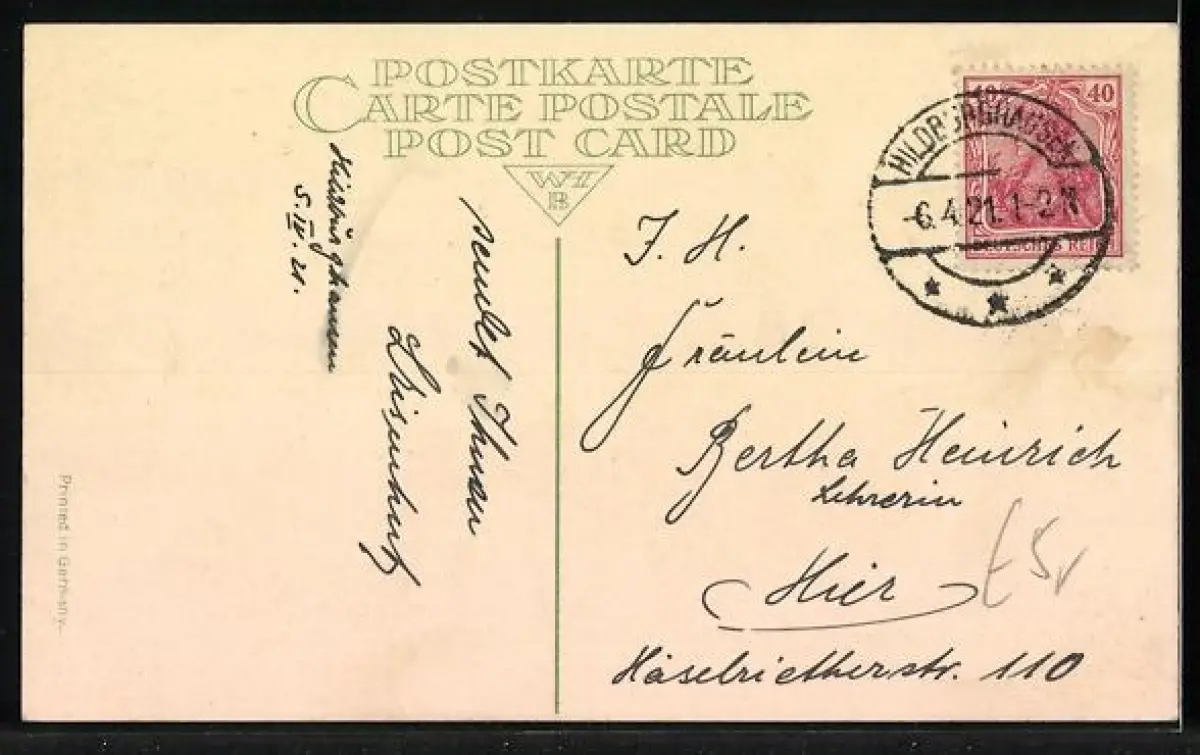 POSTKARTE
CARTE POSTALE
POST CARD
WH
B
Hildburghausen
5. IV. 21.
sendet Ihnen
40
DEUTSCHES REICH
HILDBURGHAUSEN
-6.4.21.1-2N
J. H.
Fräulein
Bertha Heinrich
Lehrerin
Hier
Häselrietherstr. 110
Printed in Germany.